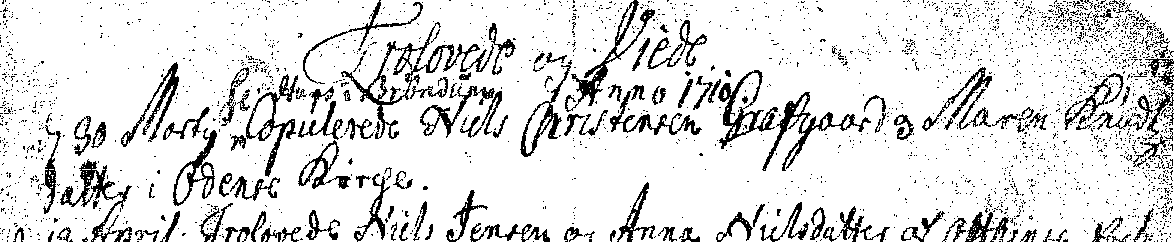 Trolovede og Viede
Anno 1710
d 30 Marty Copulerede Niels Christensen Grafgaard og Maren Knuds
datter i Odense Kirche.
12 April. Trolovede Niels Jensen og Anna Nielsdatter af